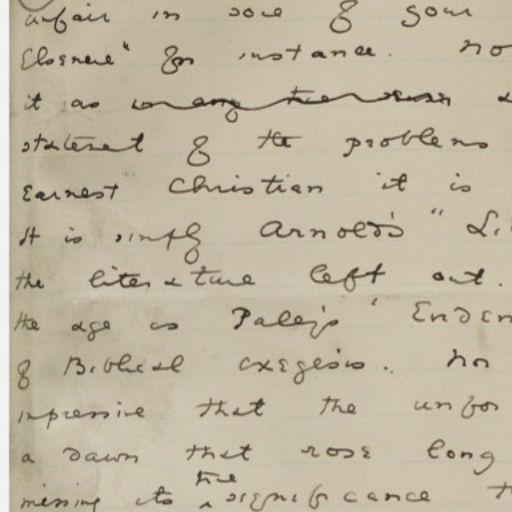 unfair in some of your
Elsmere" for instance. No
it as in any true sense a
statement of the problems
Earnest Christian it is
It is simply Arnold's "Li
the literature left out.
the age as Paley's ' Eviden
of Biblical exegesis. No
impressive that the unfor
a dawn that rose long
missing its true significance t